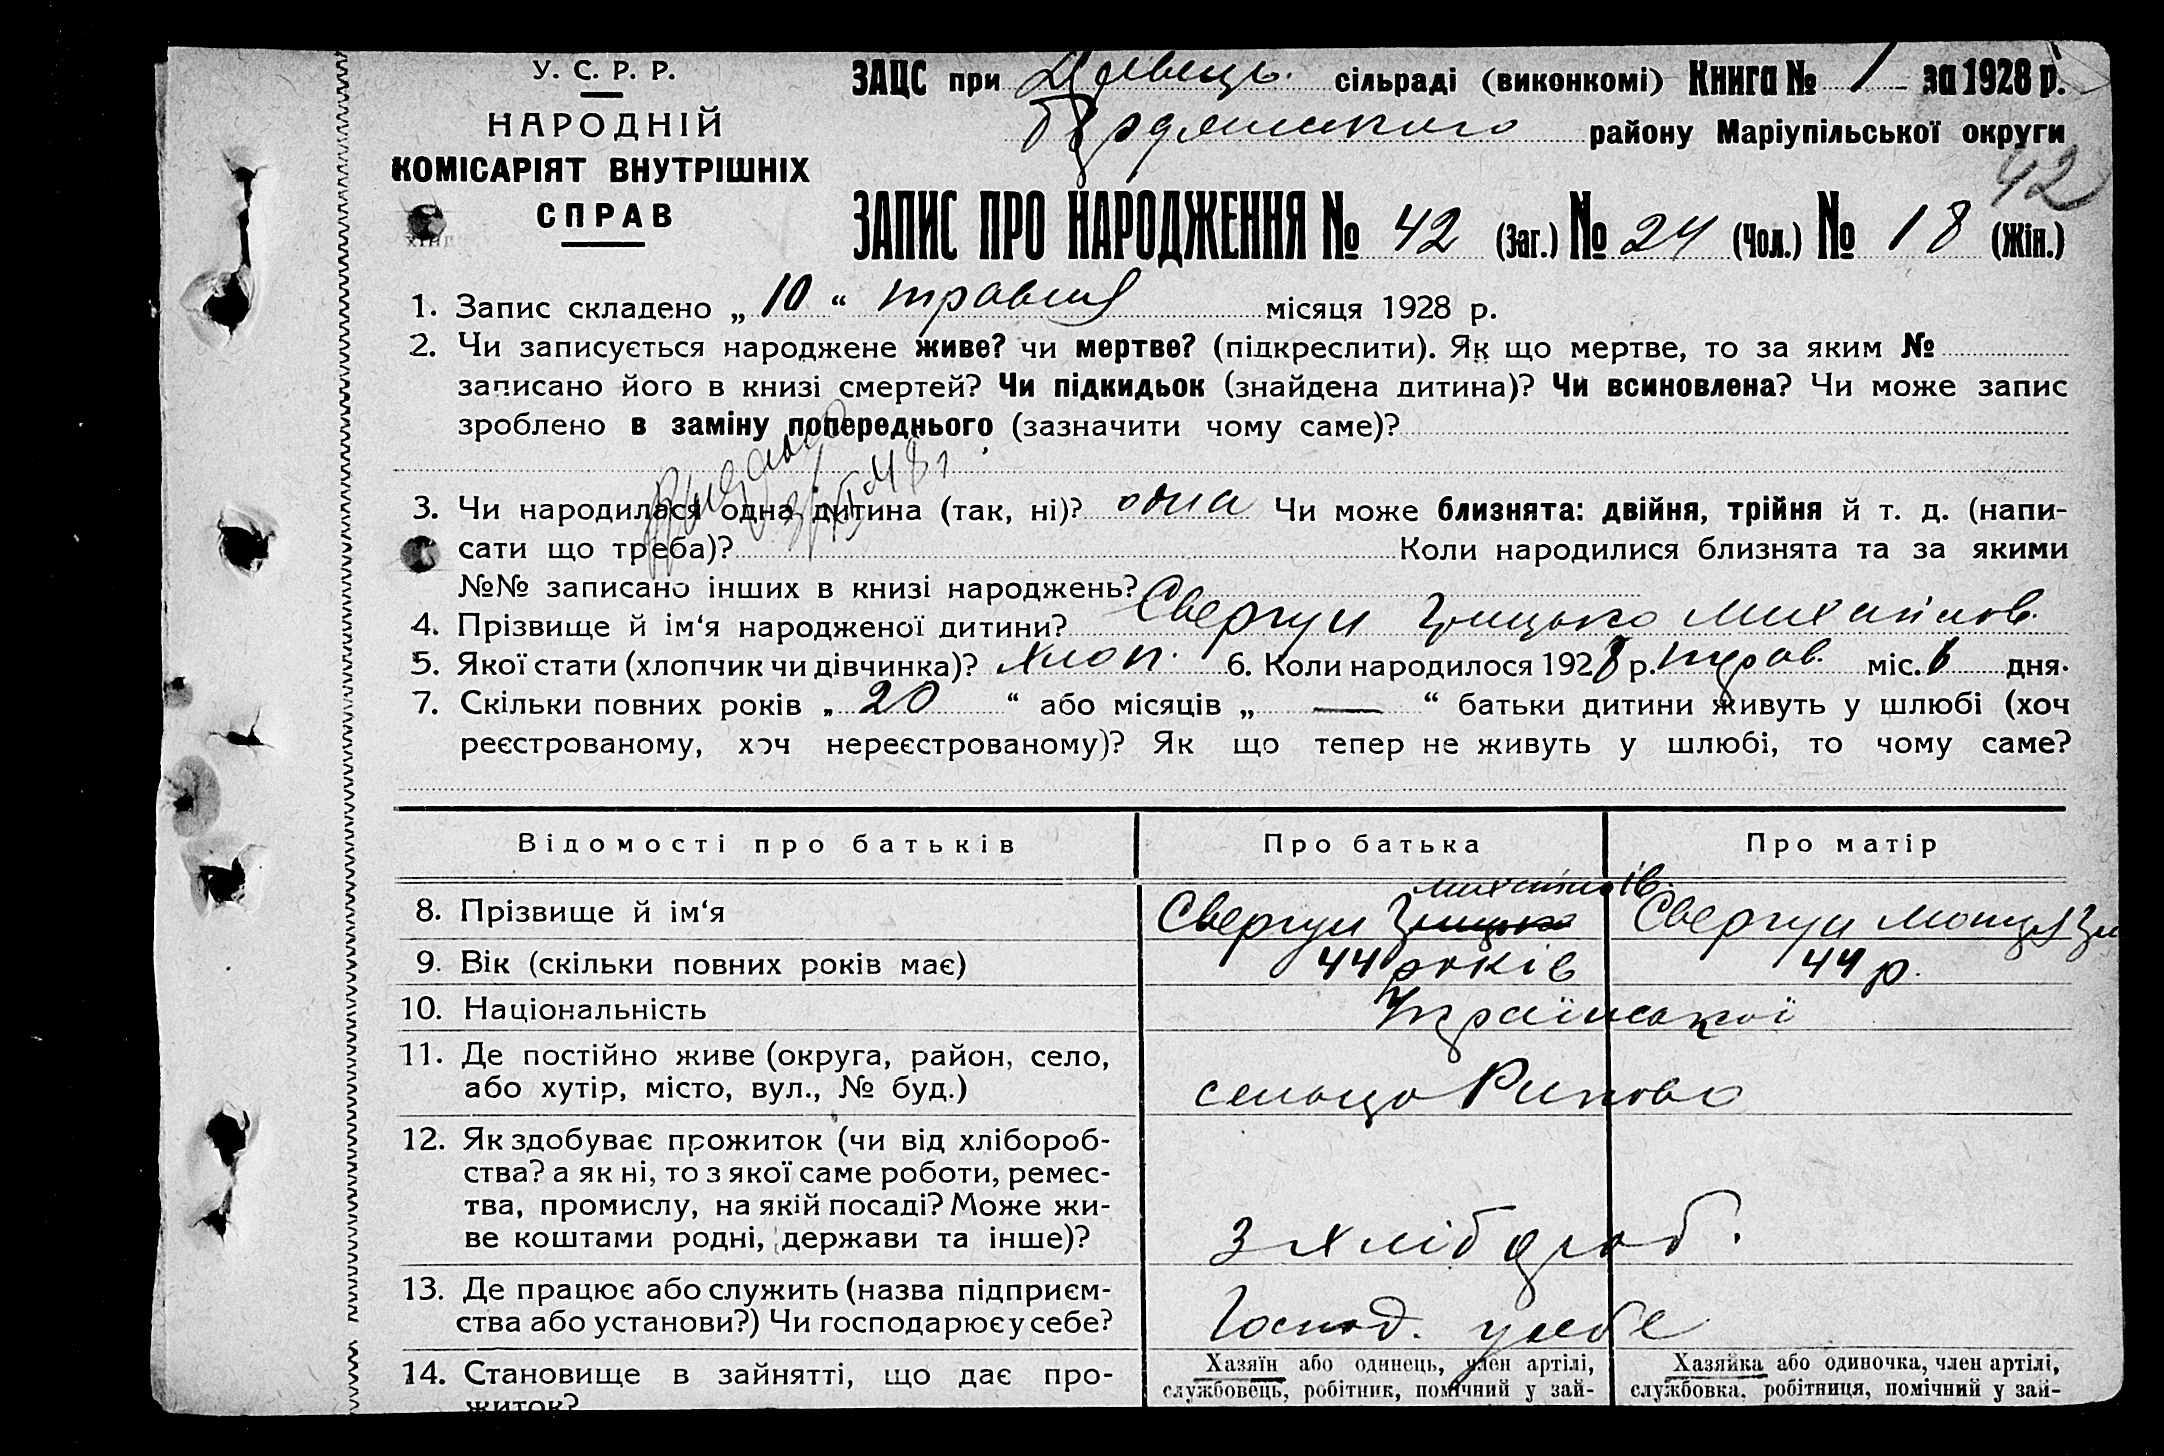 У. С. Р. Р.
НАРОДНІЙ
КОМІСАРІЯТ ВНУТРІШНІХ
СПРАВ
ЗАЦС при сільраді (виконкомі) Книга № 1 за 1928 р.
району Маріупільської округи
42
ЗАПИС ПРО НАРОДЖЕННЯ № 42 (Заг.) № 24 (Чол.) № 18 (Жін.)
1. Запис складено „ 10 “ травня місяця 1928 р.
2. Чи записується народжене живе? чи мертве? (підкреслити). Як що мертве, то за яким №
записано його в книзі смертей? Чи підкидьок (знайдена дитина)? Чи всиновлена? Чи може запис
зроблено в заміну попереднього (зазначити чому саме)?
3. Чи народилася одна дитина (так, ні)? одна Чи може близнята: двійня, трійня й т. д. (напи-
сати що треба)? Коли народилися близнята та за якими
№№ записано інших в книзі народжень?
4. Прізвище й ім‘я народженої дитини? Свергун Грицько Михайлов.
5. Якої стати (хлопчик чи дівчинка)? хлоп. 6. Коли народилося 1928 р. трав. міс. 6 дня.
7. Скільки повних років „ 20 “ або місяців „ — “ батьки дитини живуть у шлюбі (хоч
реєстрованому, хоч нереєстрованому)? Як що тепер не живуть у шлюбі, то чому саме?
Відомості про батьків Про батька Про матір
Михайлів.
8. Прізвище й ім‘я Свергун Грицько Свергун
9. Вік (скільки повних років має) 44 років 44 р.
10. Національність Української
11. Де постійно живе (округа, район, село,
або хутір, місто, вул., № буд.) сельцо
12. Як здобуває прожиток (чи від хлібороб-
ства? а як ні, то з якої саме роботи, ремес-
тва, промислу, на якій посаді? Може жи-
ве коштами родні, держави та інше)? З хлібороб.
13. Де працює або служить (назва підприєм-
ства або установи?) Чи господарює у себе? Господ. у себе
14. Становище в зайнятті, що дає про-
житок?
Хазяїн або одинець, член артілі,
службовець, робітник, помічний у зай-
Хазяйка або одиночка, член артілі,
службовка, робітниця, помічний у зай-